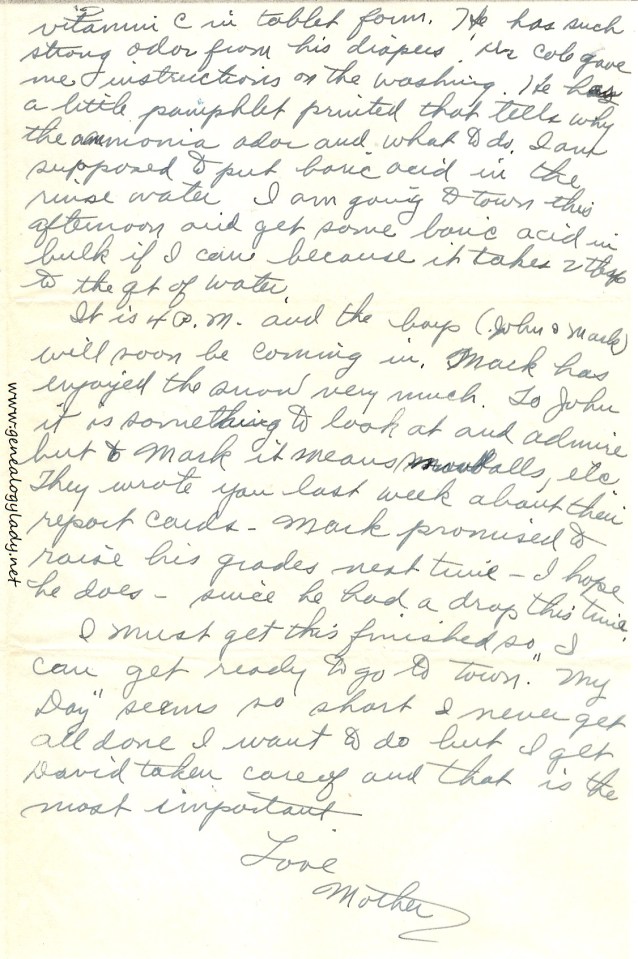 vitamin C in tablet form. He has such
strong odor from his diapers Dr Cole gave
me instructions on the washing. He has
a little pamphlet printed that tells why
the ammonia odor and what to do. I am
supposed to put boric acid in the
rinse water I am going to town this
afternoon and get some boric acid in
bulk if I can because it takes 2 tbsp
to the qt of water
It is 4 P.M. and the boys (John & Mark)
will soon be coming in. Mark has
enjoyed the snow very much. To John
it is something to look at and admire
but to Mark it means snowballs, etc
They wrote you last week about their
report cards - Mark promised to
raise his grades next time - I hope
he does - since he had a drop this time.
I must get this finished so I
can get ready to go to town. "My
Day" seems so short I never get
all done I want to do but I get
David taken care of and that is the
most important
Love
Mother
www.genealogylady.net